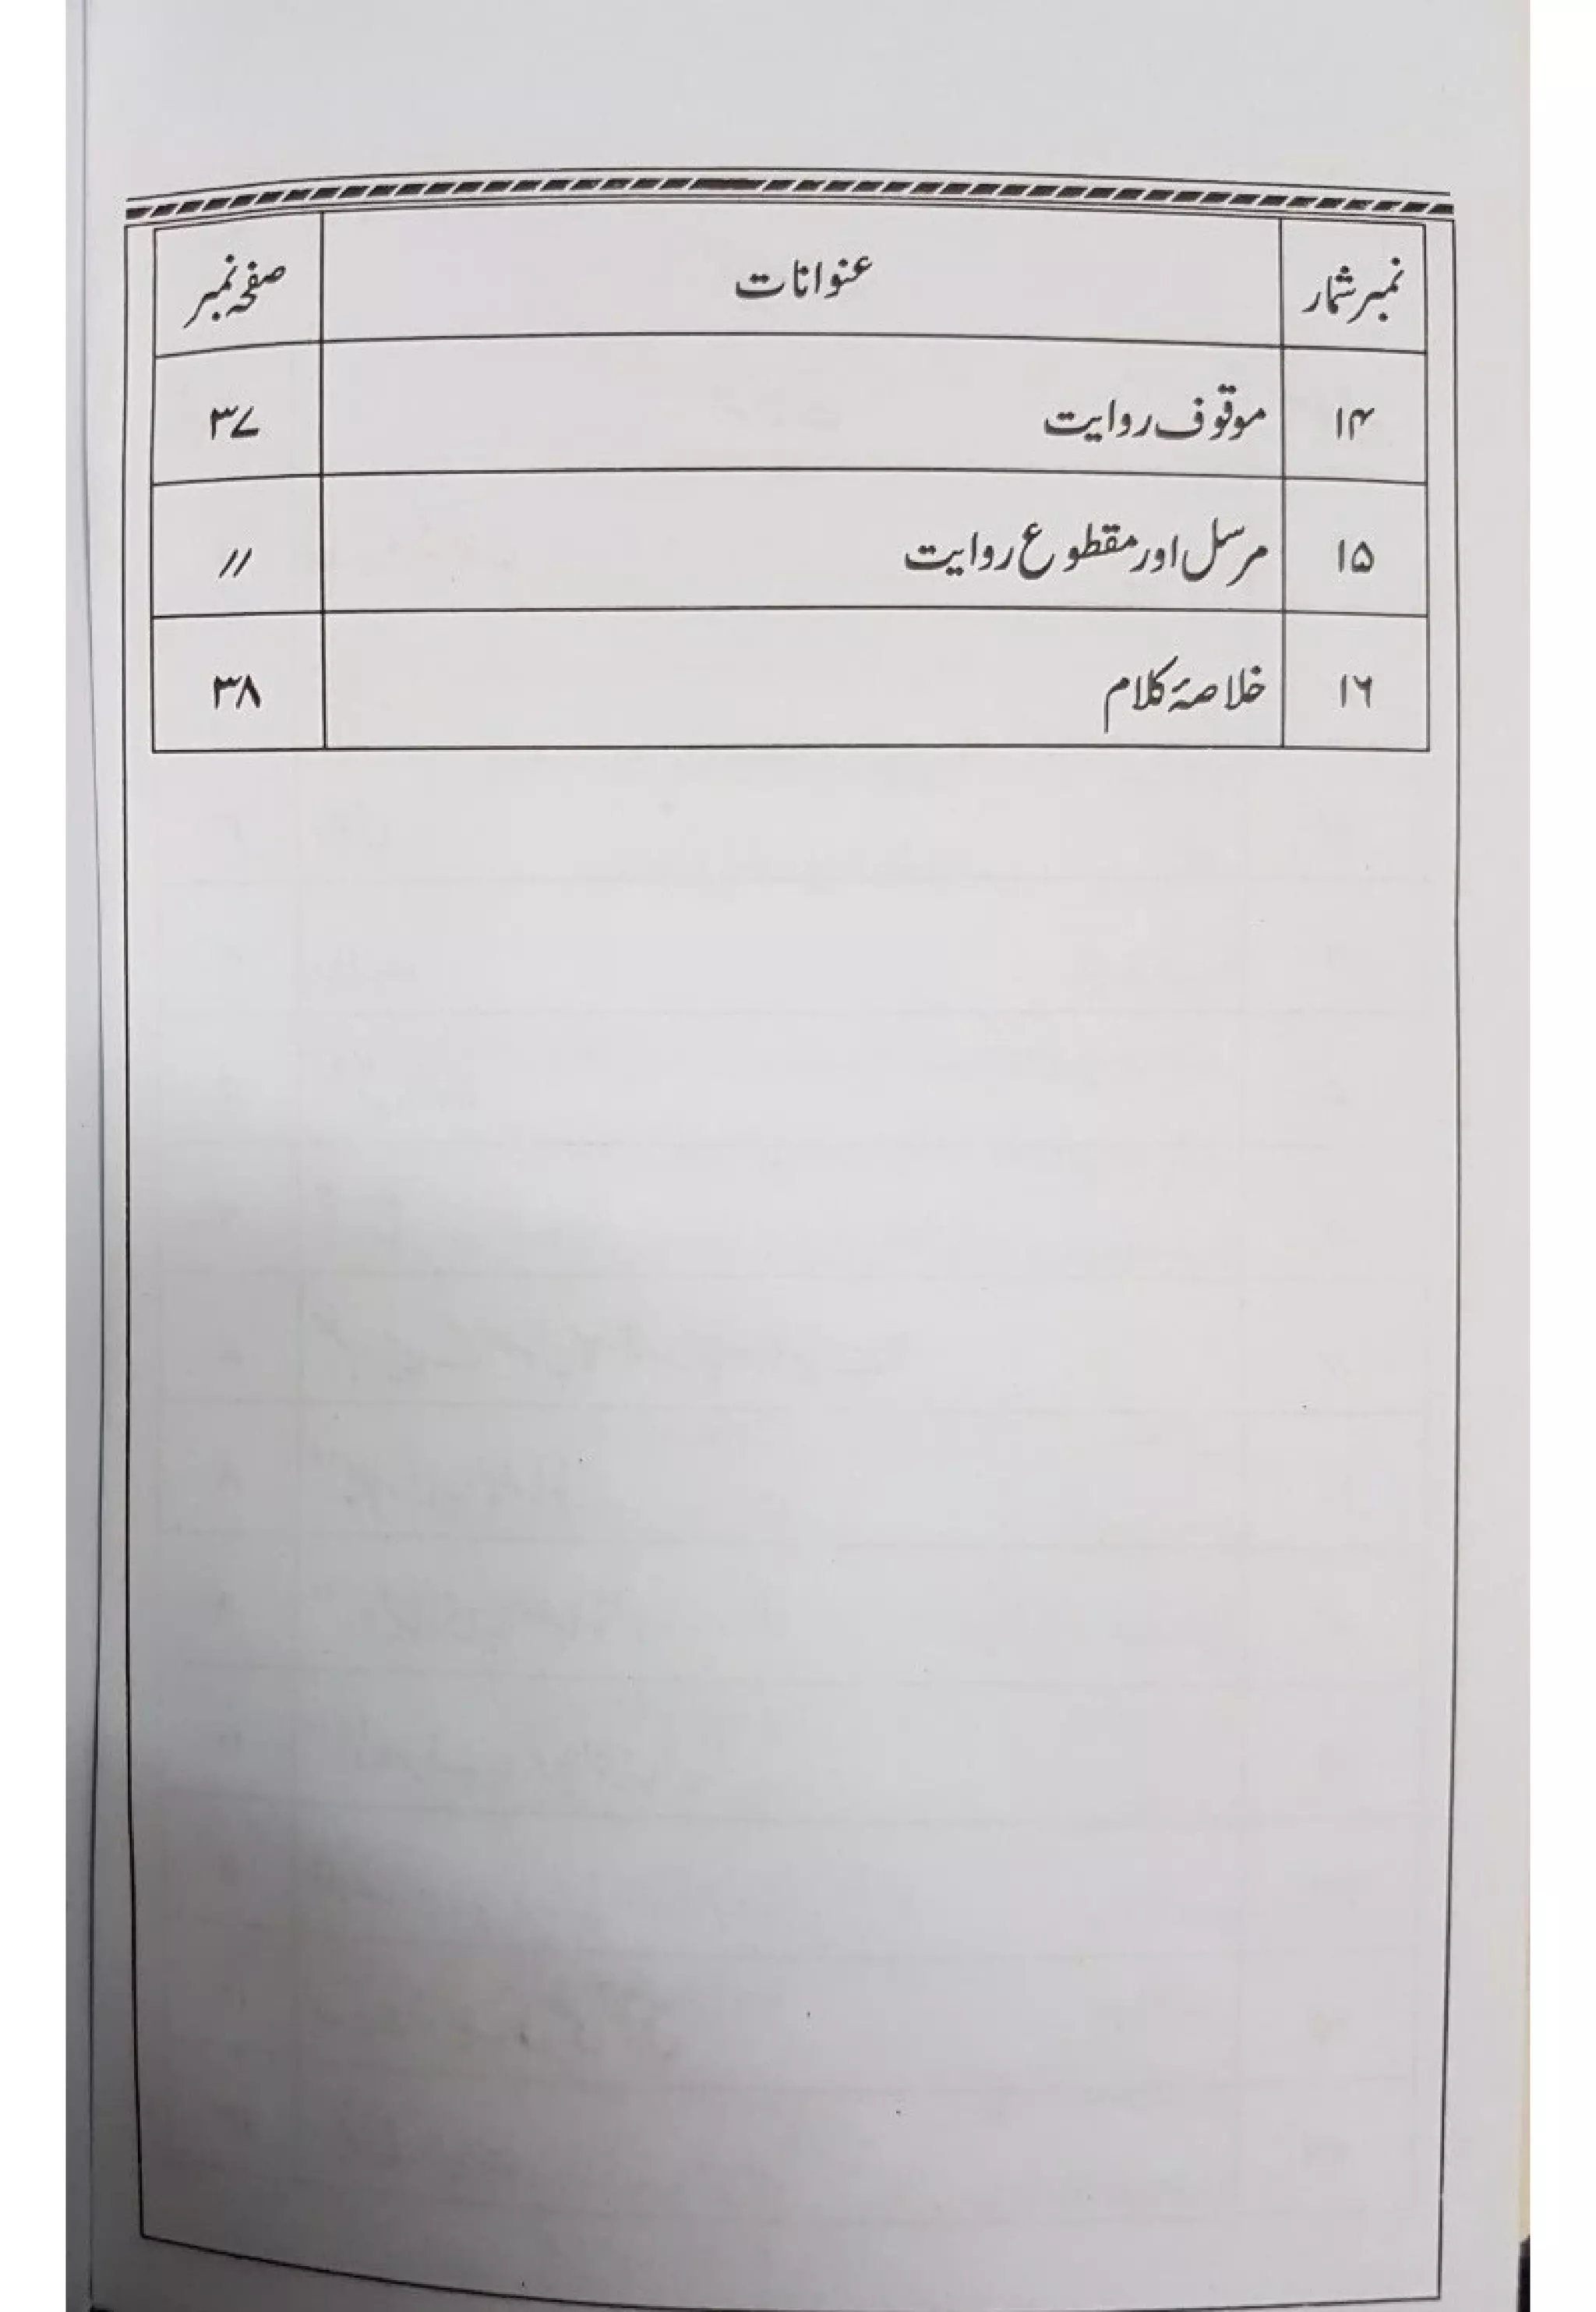 نمبر شمار عنوانات صفحہ نمبر
۱۴ موقوف روایت ۳۷
۱۵ مرسل اور مقطوع روایت //
۱۶ خلاصۂ کلام ۳۸